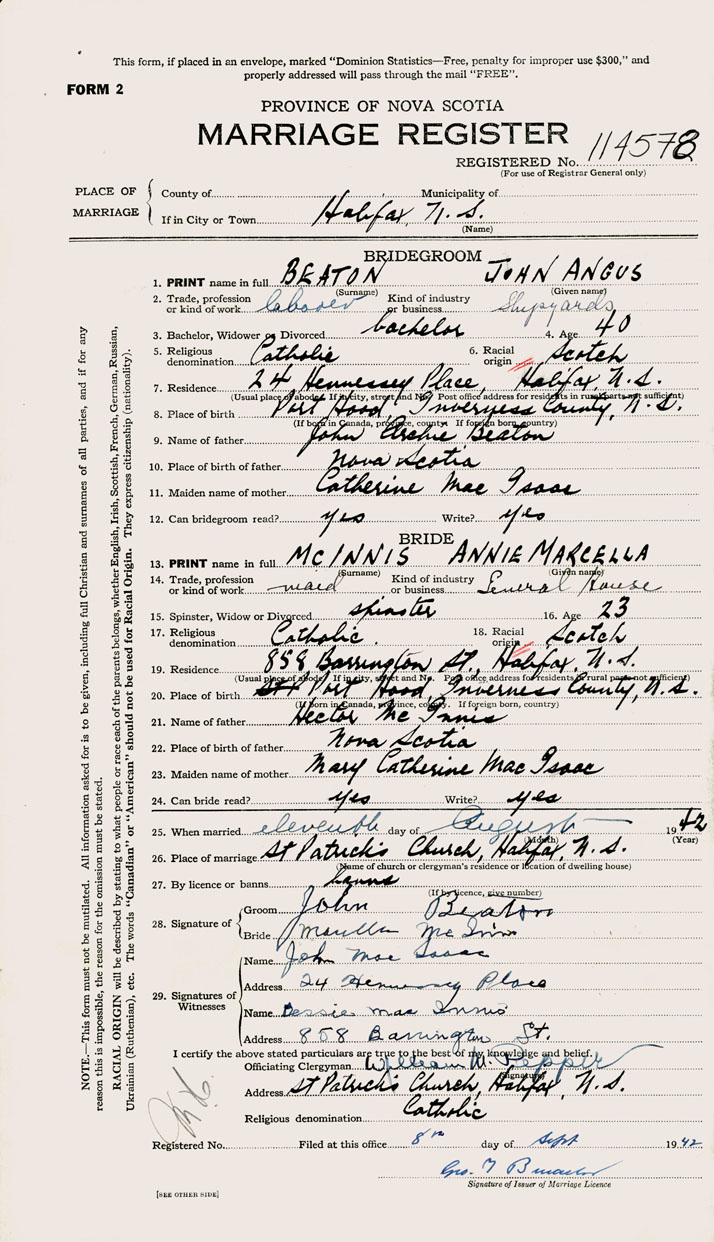 This form, if placed in an envelope, marked "Dominion Statistics—Free, penalty for improper use $300," and
properly addressed will pass through the mail "FREE".
FORM 2
PROVINCE OF NOVA SCOTIA
MARRIAGE REGISTER
REGISTERED No. 114578
(For use of Registrar General only)
PLACE OF MARRIAGE
County of Municipality of
If in City or Town Halifax, N.S.
(Name)
BRIDEGROOM
1. PRINT name in full BEATON JOHN ANGUS
(Surname) (Given name)
2. Trade, profession or kind of work laborer Kind of industry or business Shipyards
3. Bachelor, Widower or Divorced bachelor 4. Age 40
5. Religious denomination Catholic 6. Racial origin Scotch
7. Residence 24 Hennessey Place, Halifax N.S.
(Usual place of abode. If in city, street and No. Post office address for residents in rural parts not sufficient)
8. Place of birth Port Hood, Inverness County, N.S.
(If born in Canada, province, county. If foreign born, country)
9. Name of father John Archie Beaton
10. Place of birth of father Nova Scotia
11. Maiden name of mother Catherine Mac Isaac
12. Can bridegroom read? yes Write? yes
BRIDE
13. PRINT name in full MCINNIS ANNIE MARCELLA
(Surname) (Given name)
14. Trade, profession or kind of work maid Kind of industry or business General House
15. Spinster, Widow or Divorced spinster 16. Age 23
17. Religious denomination Catholic. 18. Racial origin Scotch
19. Residence 858, Barrington St., Halifax, N.S.
(Usual place of abode. If in city, street and No. Post office address for residents of rural parts not sufficient)
20. Place of birth Port Hood, Inverness County, N.S.
(If born in Canada, province, county. If foreign born, country)
21. Name of father Hector Mc Innis
22. Place of birth of father Nova Scotia
23. Maiden name of mother Mary Catherine Mac Isaac
24. Can bride read? yes Write? yes
25. When married eleventh day of August 1942
(Month) (Year)
26. Place of marriage St Patrick's Church, Halifax, N.S.
(Name of church or clergyman's residence or location of dwelling house)
27. By licence or banns banns
(If by licence, give number)
28. Signature of
Groom John Beaton
Bride Mc Innis
29. Signatures of Witnesses
Name John Mac Isaac
Address 24 Hennessey Place
Name Bessie Mac Innis
Address 858 Barrington St.
I certify the above stated particulars are true to the best of my knowledge and belief.
Officiating Clergyman William M. Pepper
(Signature)
Address St Patrick's Church, Halifax, N.S.
Religious denomination Catholic
Registered No. Filed at this office 8th day of Sept 1942
Geo. T
Signature of Issuer of Marriage Licence
[SEE OTHER SIDE]
NOTE.—This form must not be mutilated. All information asked for is to be given, including full Christian and surnames of all parties, and if for any
reason this is impossible, the reason for the omission must be stated.
RACIAL ORIGIN will be described by stating to what people or race each of the parents belongs, whether English, Irish, Scottish, French, German, Russian,
Ukrainian (Ruthenian), etc. The words "Canadian" or "American" should not be used for Racial Origin. They express citizenship (nationality).